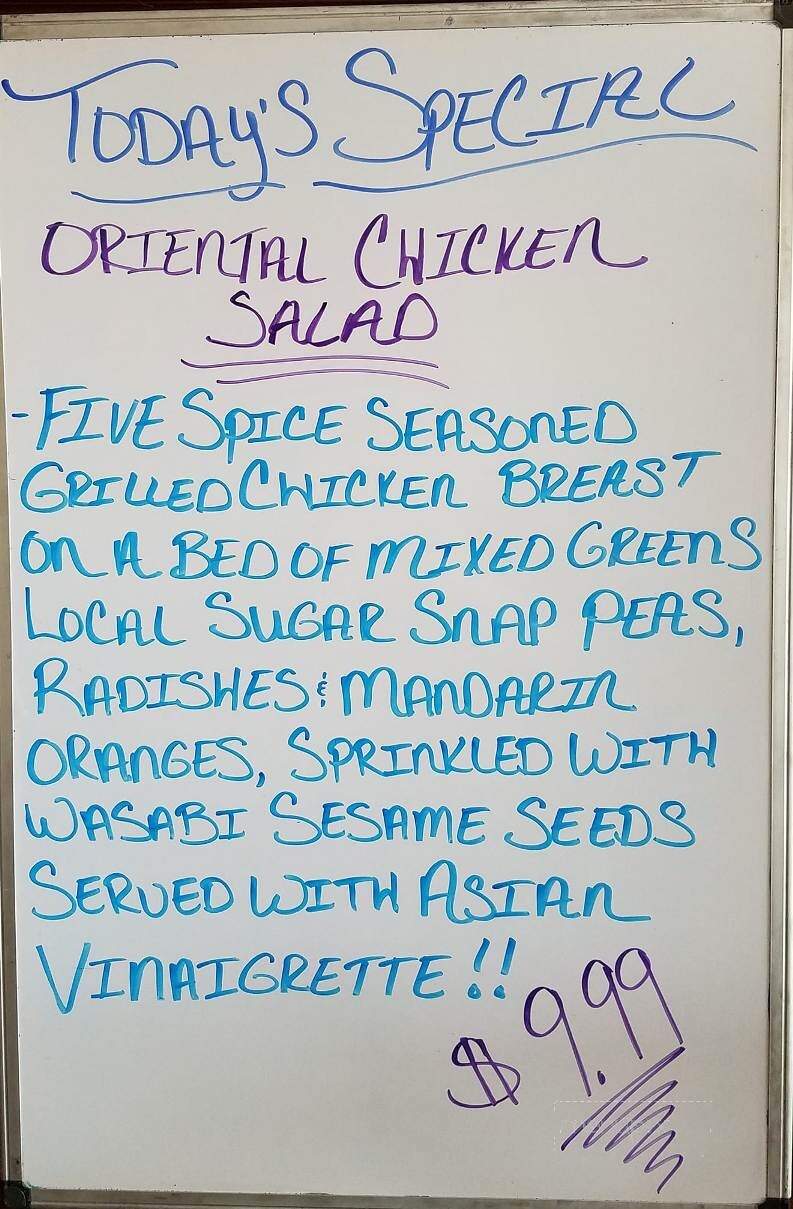 TODAY'S SPECIAL
ORIENTAL CHICKEN
SALAD
-FIVE SPICE SEASONED
GRILLED CHICKEN BREAST
ON A BED OF MIXED GREENS
LOCAL SUGAR SNAP PEAS,
RADISHES & MANDARIN
ORANGES, SPRINKLED WITH
WASABI SESAME SEEDS
SERVED WITH ASIAN
VINAIGRETTE!!
$9.99